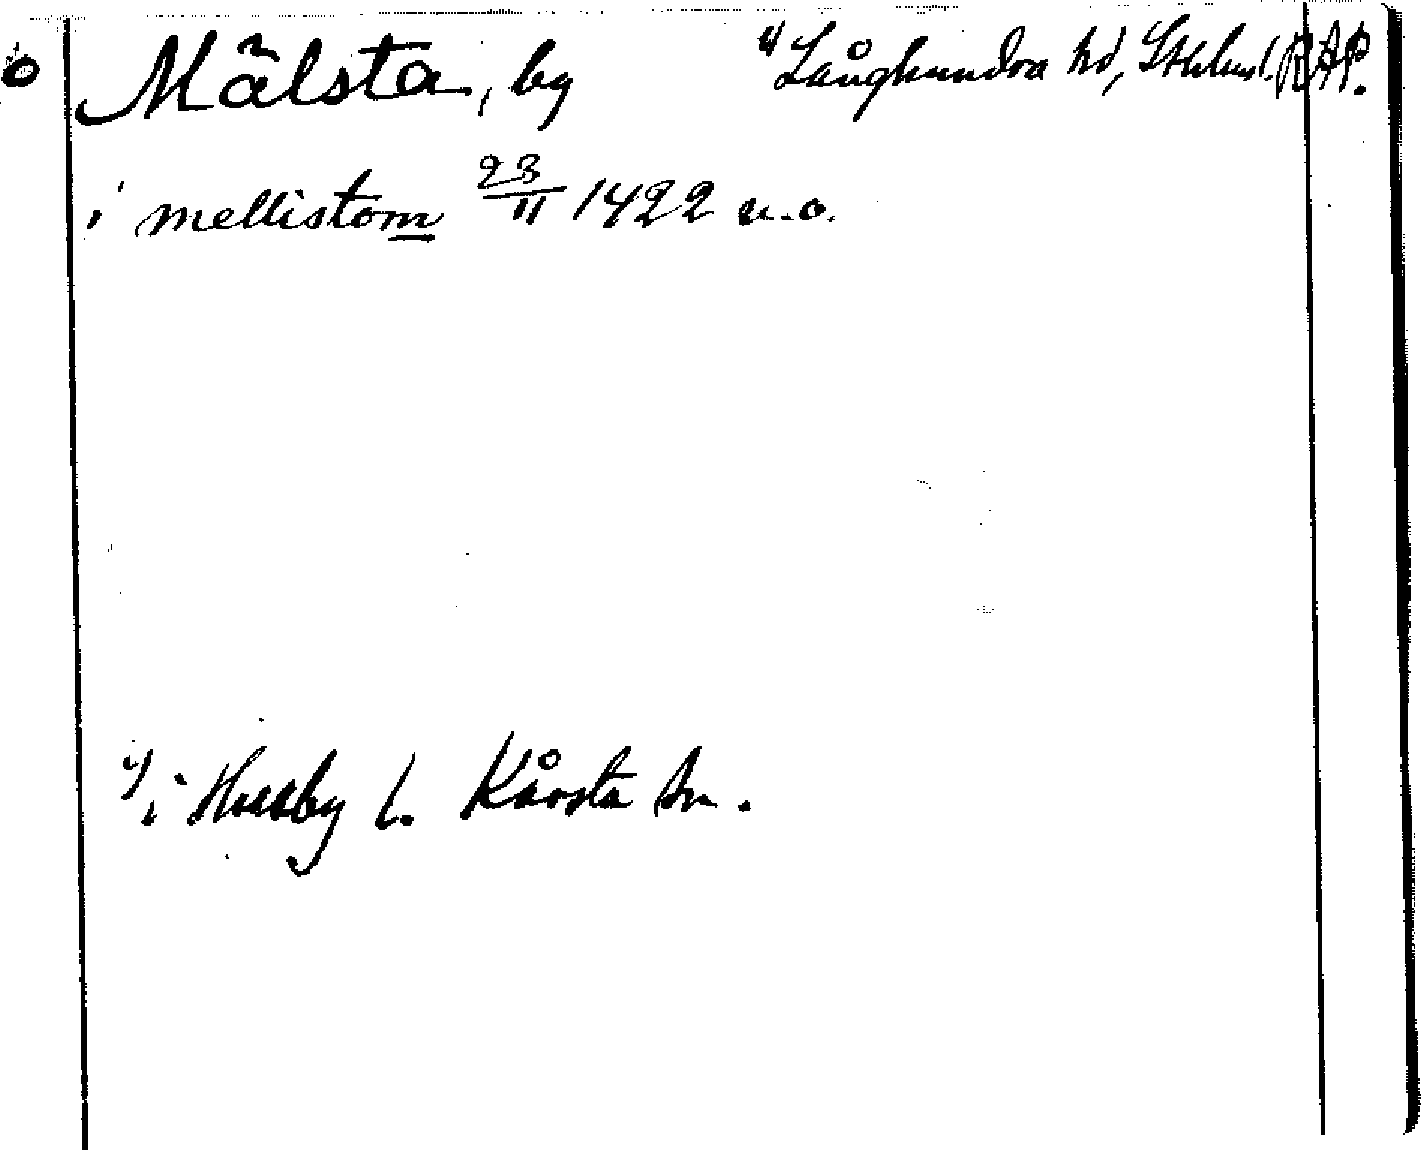 o Mälsta, by 1) Långhundra hd, Sthlms l. RAP.
i mellistom 23/11 1422 u.o.
1) i Husby l. Kårsta sn.